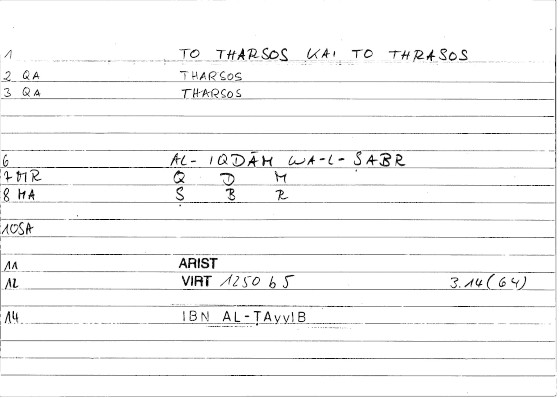 1 TO THARSOS KAI TO THRASOS
2 QA THARSOS
3 QA THARSOS
6 AL-IQDĀM WA-L-ṢABR
7 MR Q D M
8 MA Ṣ B R
10SA
11 ARIST
12 VIRT 1250 b 5 3.14(64)
14 IBN AL-ṬAyyIB